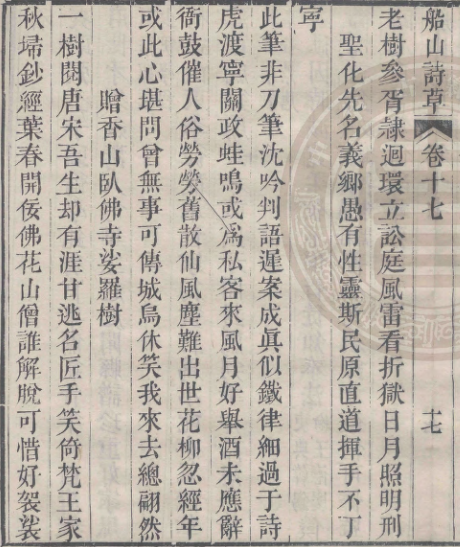 船山詩草 卷十七 十七
老樹參胥隸迴環立訟庭風雷看折獄日月照明刑
聖化先名義鄉愚有性靈斯民原直道揮手不丁
寧
此筆非刀筆沈吟判語遲案成眞似鐵律細過于詩
虎渡寧關政蛙鳴或爲私客來風月好舉酒未應辭
衙鼓催人俗勞勞舊散仙風塵難出世花柳忽經年
或此心堪問曾無事可傳城烏休笑我來去總翩然
贈香山臥佛寺娑羅樹
一樹閱唐宋吾生却有涯甘逃名匠手笑倚梵王家
秋埽鈔經葉春開佞佛花山僧誰解脫可惜好袈裟